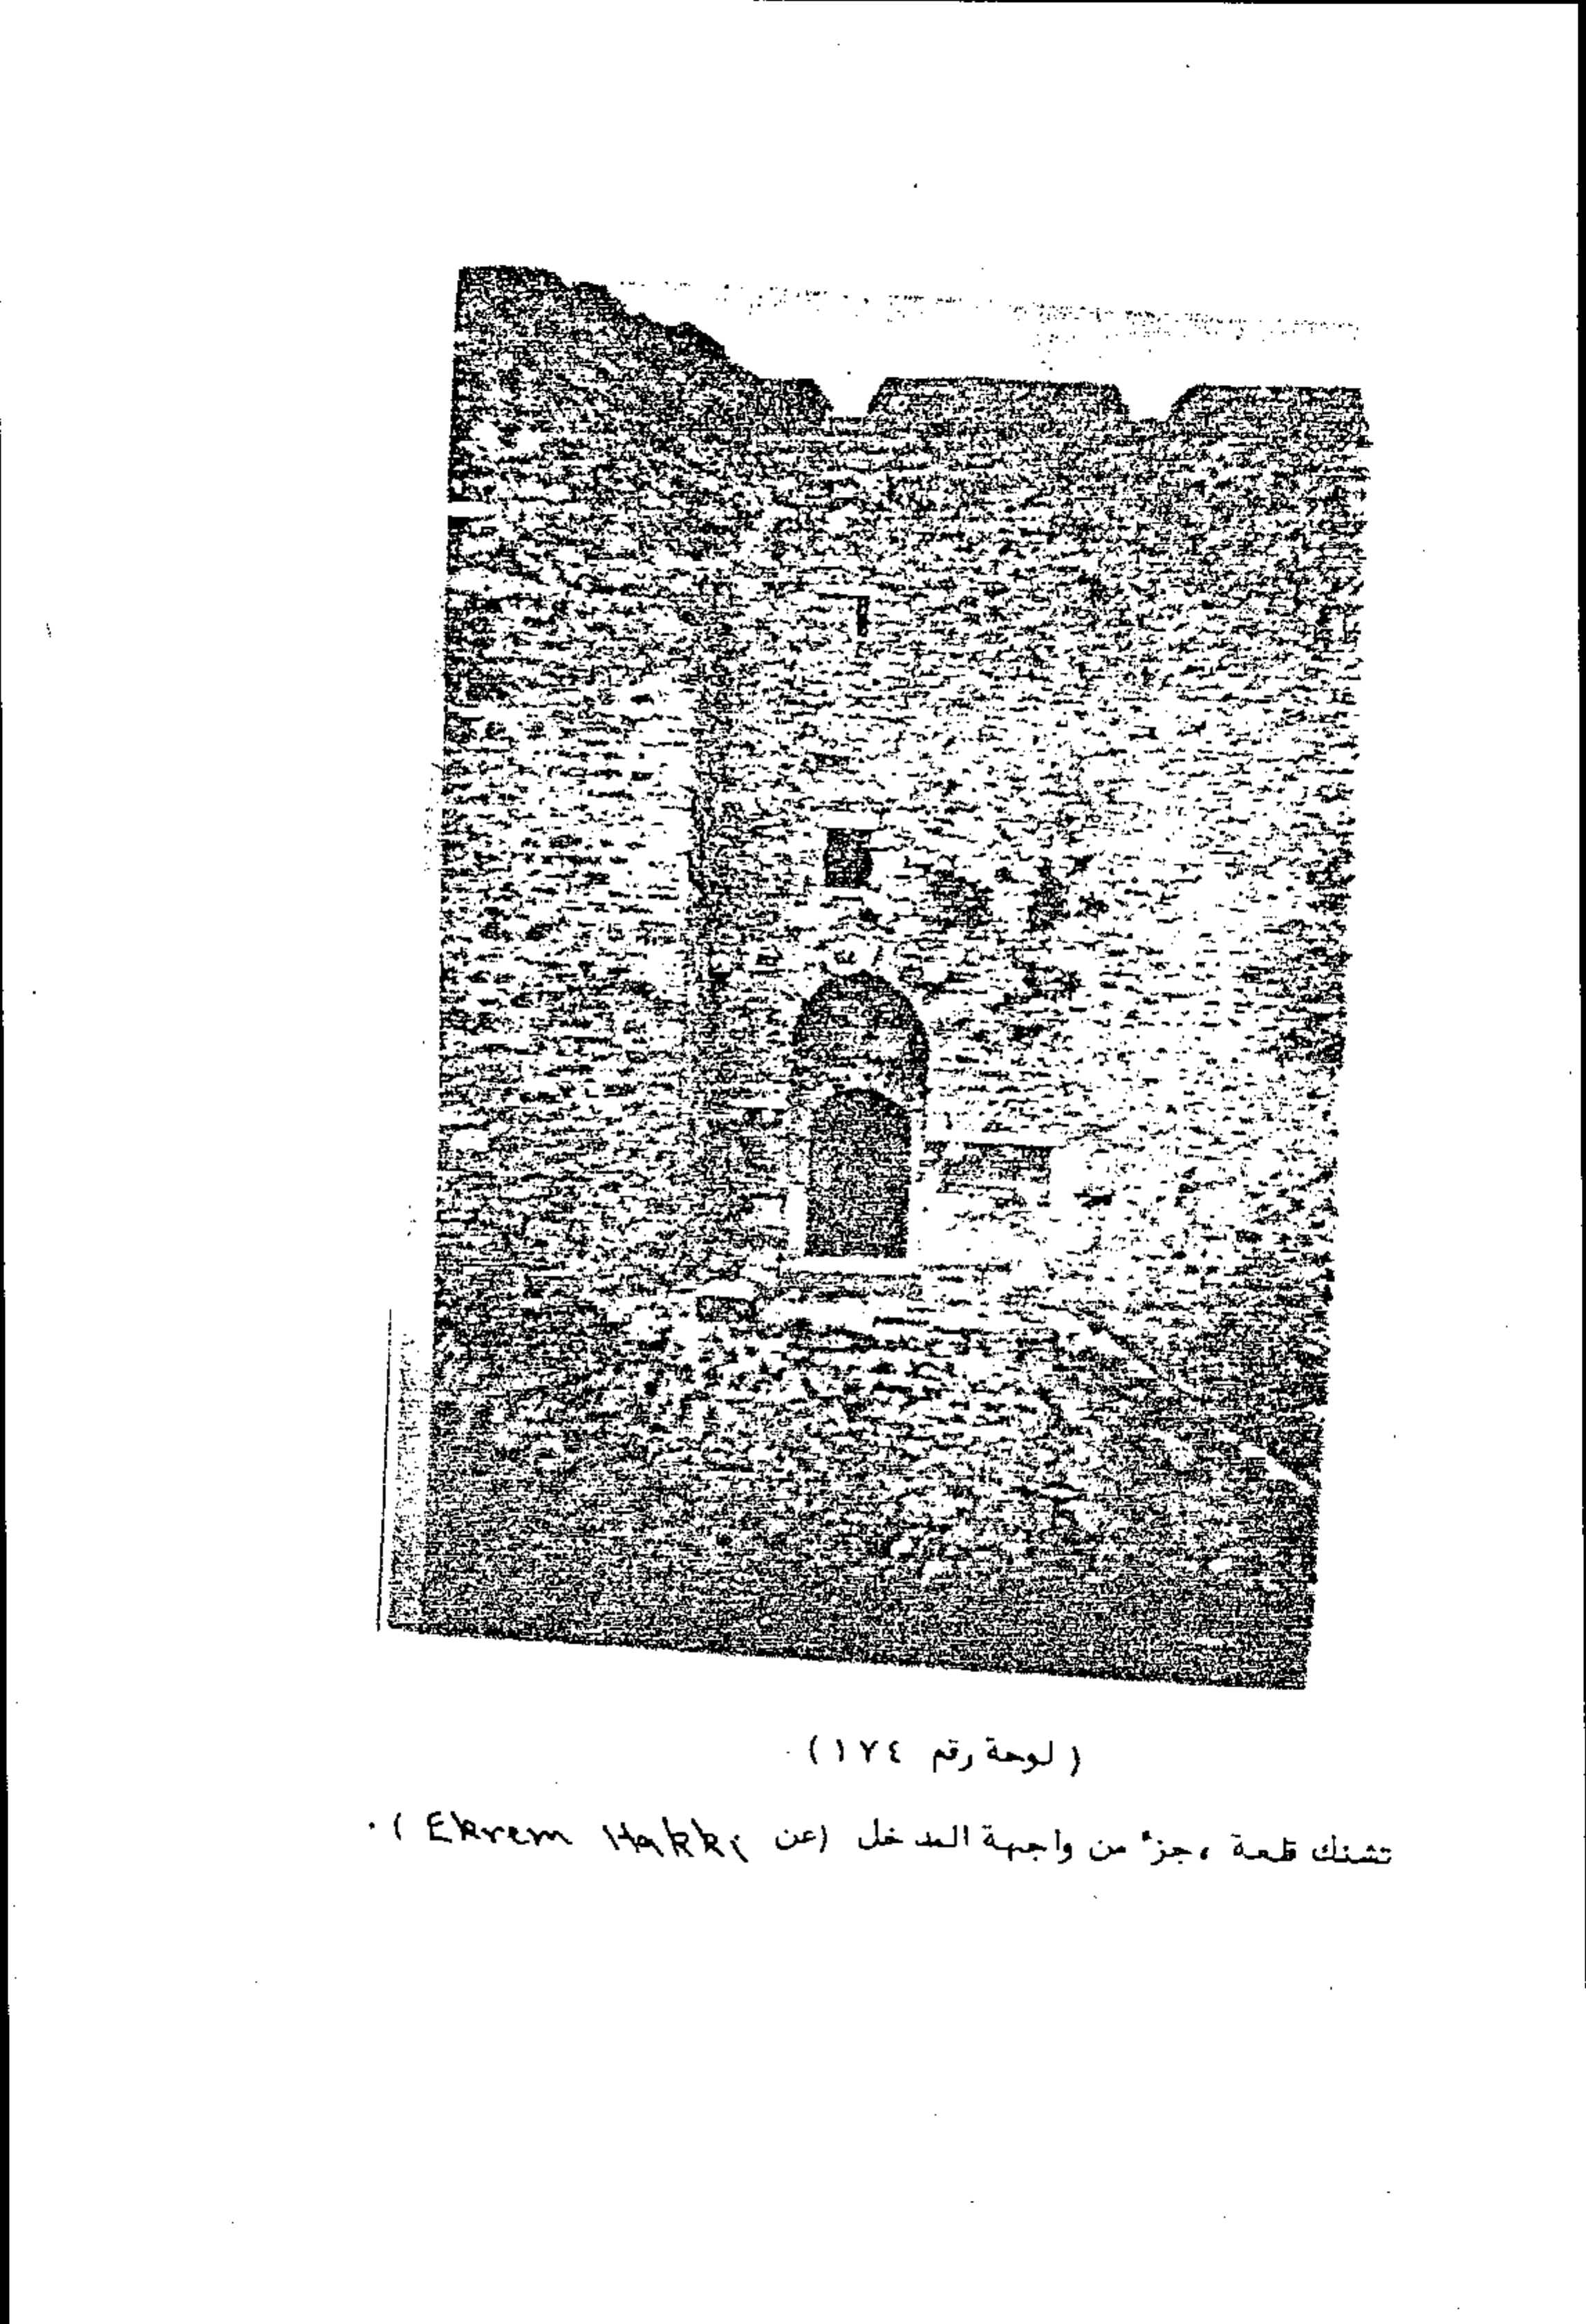 ( لوحة رقم ١٧٤ )
تشنك قلعة ، جزء من واجهة المدخل (عن Ekrem Hakkı ) .